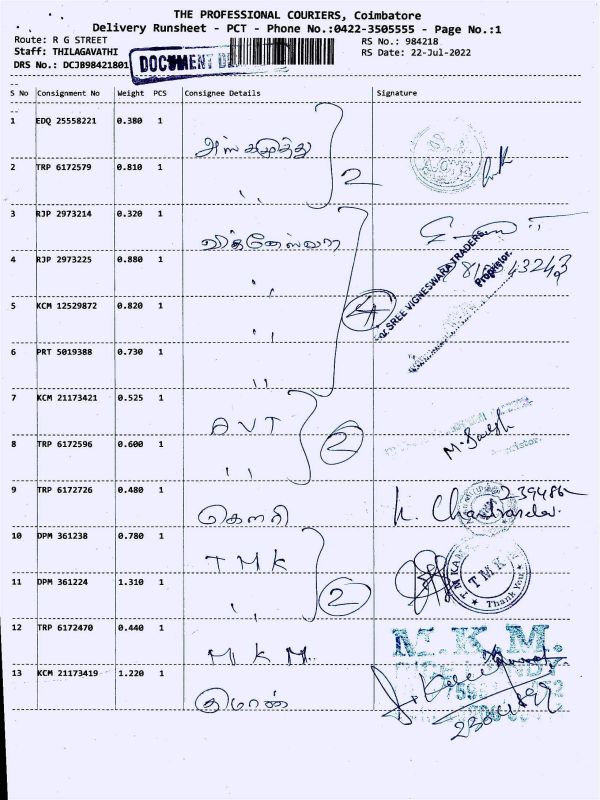 THE PROFESSIONAL COURIERS, Coimbatore
Delivery Runsheet - PCT - Phone No.:0422-3505555 - Page No.:1
Route: R G STREET RS No.: 984218
Staff: THILAGAVATHI RS Date: 22-Jul-2022
DRS No.: DCJB98421801 DOCUMENT
S No Consignment No Weight PCS Consignee Details Signature
1 EDQ 25558221 0.380 1
2 TRP 6172579 0.810 1 ,, 2
3 RJP 2973214 0.320 1 விக்னேஸ்வரா
4 RJP 2973225 0.880 1 ,,
For SREE VIGNESWARA TRADERS
Propritor.
5 KCM 12529872 0.820 1 ,, 4
6 PRT 5019388 0.730 1 ,,
7 KCM 21173421 0.525 1 AVT
8 TRP 6172596 0.600 1 ,, 2
9 TRP 6172726 0.480 1 கௌரி
10 DPM 361238 0.780 1 TMK
TMK
Thank You
11 DPM 361224 1.310 1 ,, 2
12 TRP 6172470 0.440 1 MKM.. M.K.M.
13 KCM 21173419 1.220 1